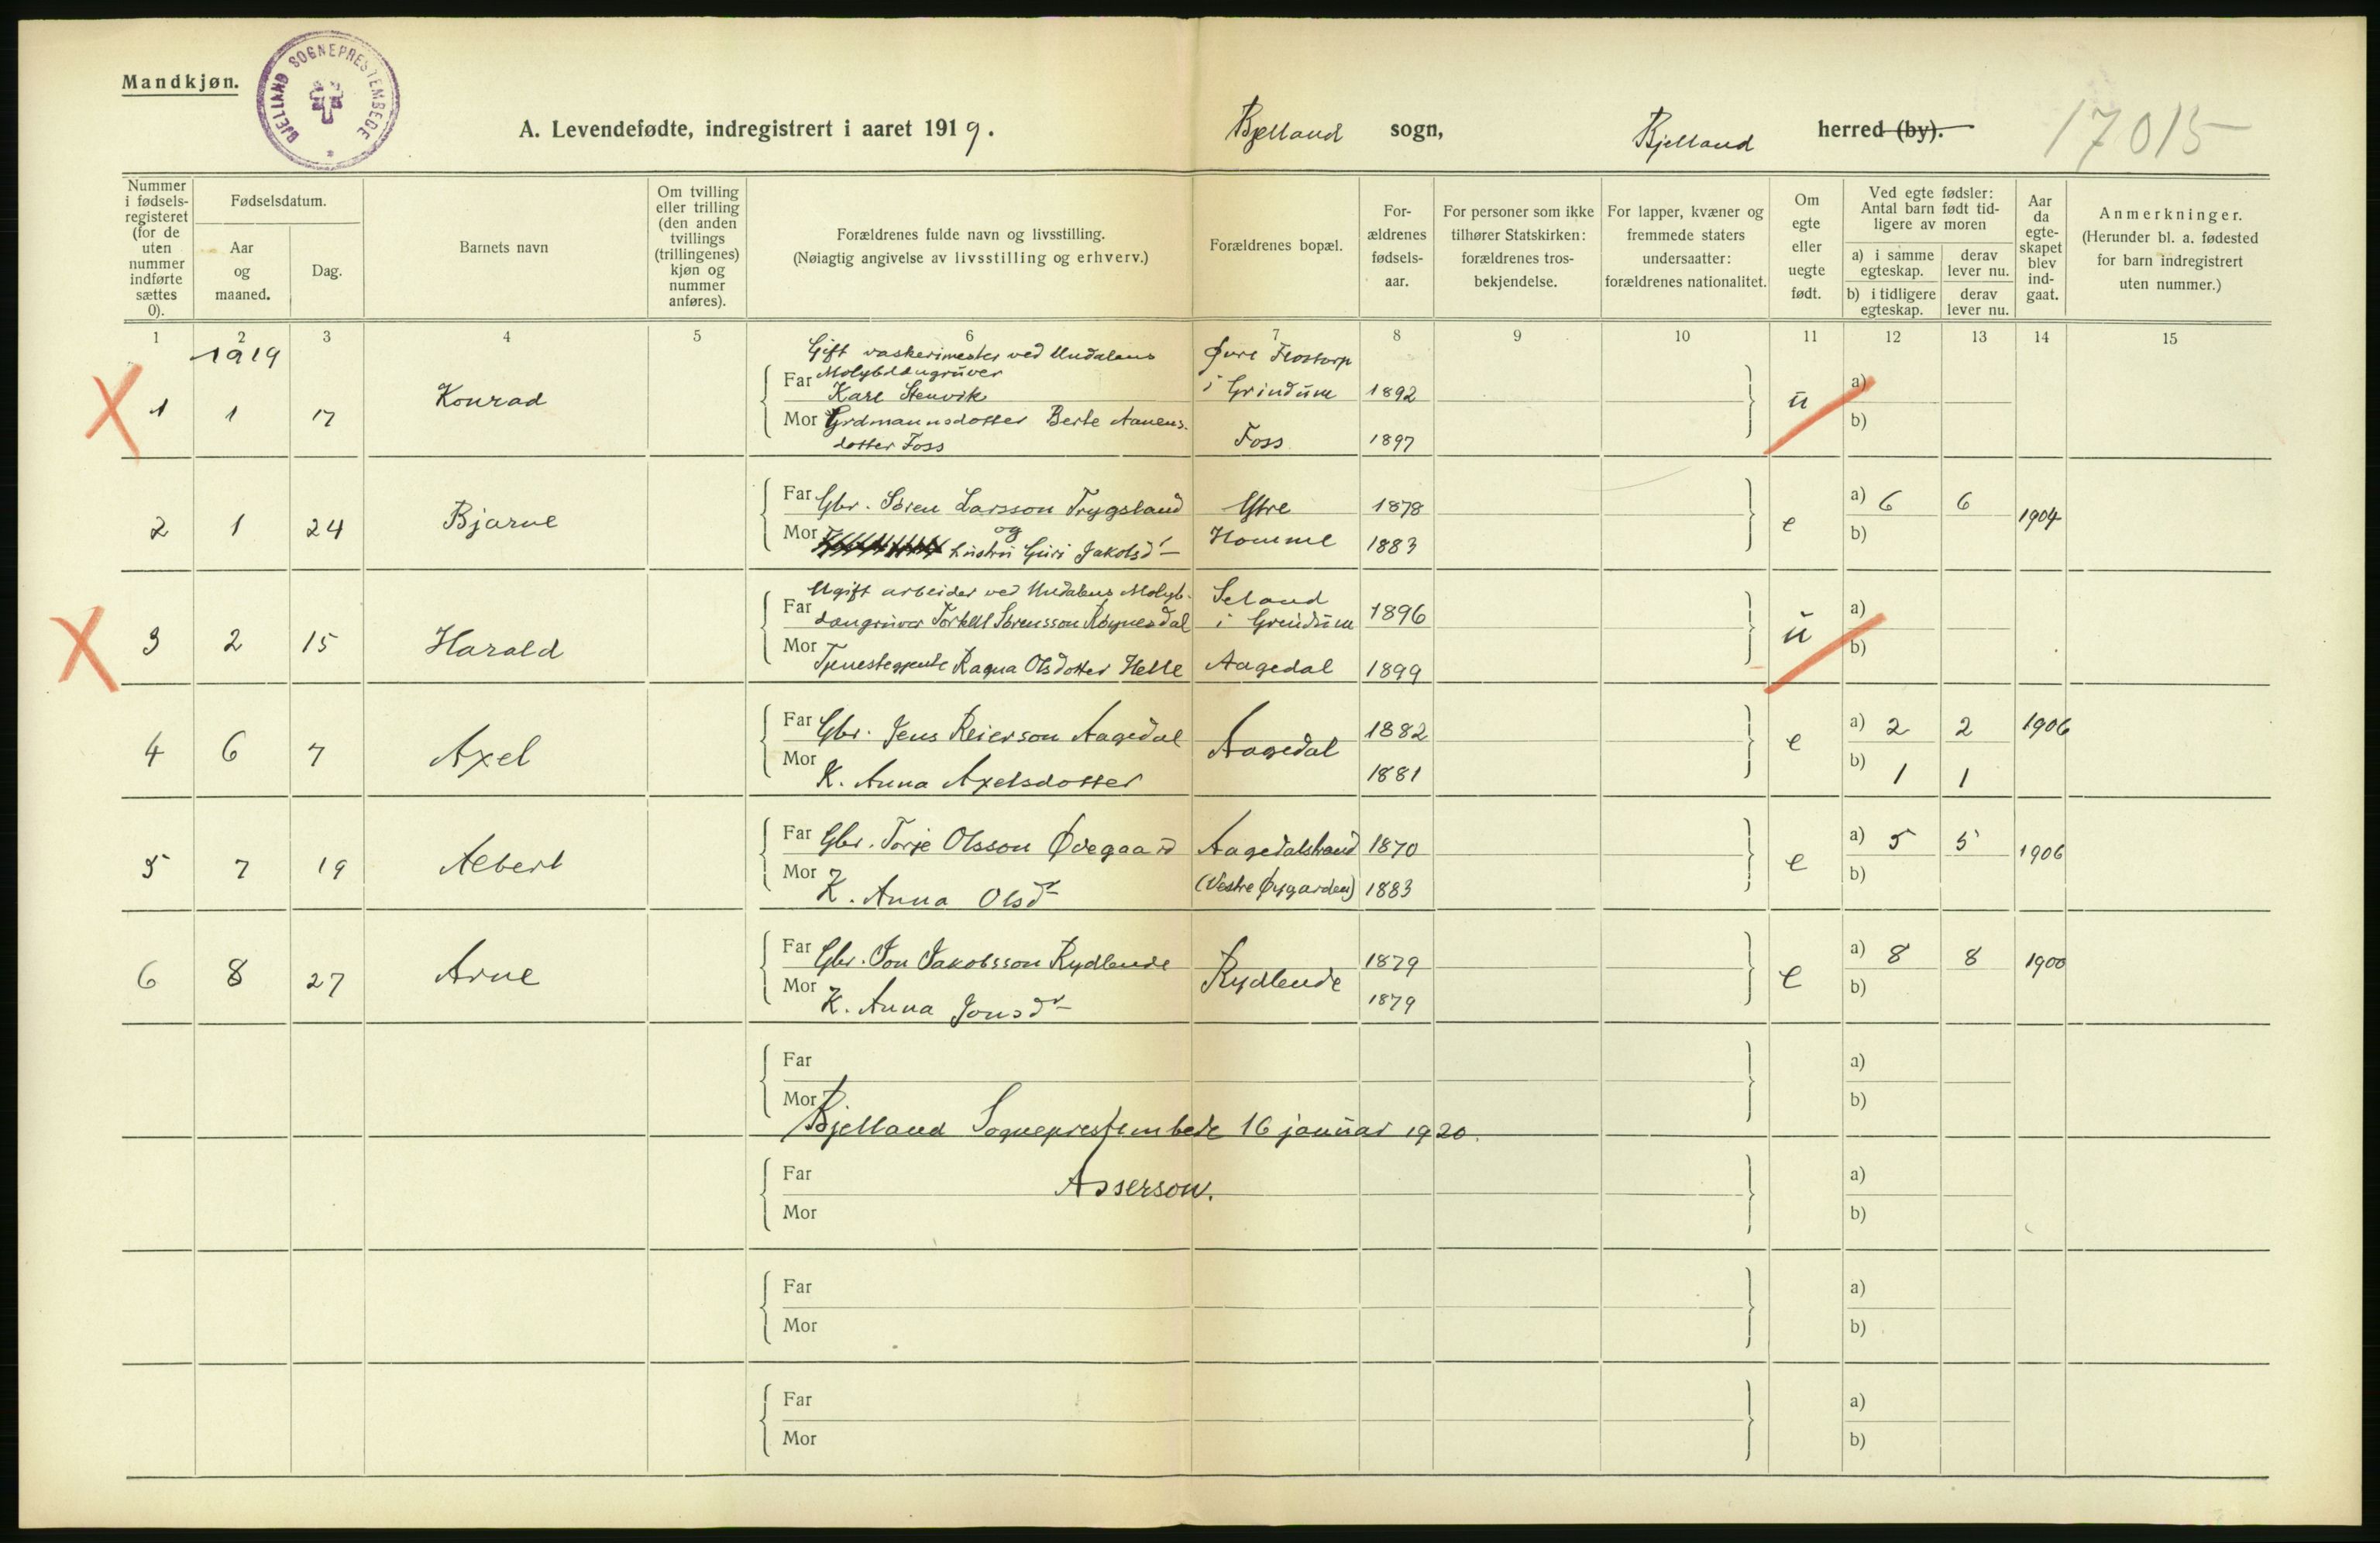 Mandkjøn.
BJELLAND SOGNEPRESTEMBEDE
A. Levendefødte, indregistrert i aaret 1919.
Bjelland sogn,
Bjelland herred (by).
17015
Nummer i fødsels-registeret (for de uten nummer indførte sættes 0).
Fødselsdatum.
Aar og maaned.
Dag.
Barnets navn
Om tvilling eller trilling (den anden tvillings (trillingenes) kjøn og nummer anføres).
Forældrenes fulde navn og livsstilling.
(Nøiagtig angivelse av livsstilling og erhverv.)
Forældrenes bopæl.
For-ældrenes fødsels-aar.
For personer som ikke tilhører Statskirken: forældrenes tros-bekjendelse.
For lapper, kvæner og fremmede staters undersaatter: forældrenes nationalitet.
Om egte eller uegte født.
Ved egte fødsler: Antal barn født tid-ligere av moren
a) i samme egteskap.
derav lever nu.
b) i tidligere egteskap.
derav lever nu.
Aar da egte-skapet blev ind-gaat.
Anmerkninger.
(Herunder bl. a. fødested for barn indregistrert uten nummer.)
1 2 3 4 5 6 7 8 9 10 11 12 13 14 15
1919
Gift vaskerimester ved Undalens
Molybdængruver
1 1 17 Konrad Far Karl Stenvik i Grindum 1892 u a)
Mor Grdmannsdotter Berte Aanens-
dotter Foss Foss 1897 b)
2 1 24 Bjarne Far Gbr. Søren Larsson Trygsland Ytre 1878 e a) 6 6 1904
Mor og hustru Guri Jakobsd Homme 1883 b)
Ugift arbeider ved Undalens Molyb-
3 2 15 Harald Far dængruver Torkell Sørensson Røynesdal Seland i Grindum 1896 u a)
Mor Tjenestegjente Ragna Olsdotter Helle Aagedal 1899 b)
4 6 7 Axel Far Gbr. Jens Reierson Aagedal Aagedal 1882 e a) 2 2 1906
Mor K. Anna Axelsdotter 1881 b) 1 1
5 7 19 Albert Far Gbr. Torje Olsson Ødegaard Aagedalstrand 1870 e a) 5 5 1906
Mor K. Anna Olsd (Vestre Øygarden) 1883 b)
6 8 27 Arne Far Gbr. Jon Jakobsson Rydlende Rydlende 1879 e a) 8 8 1900
Mor K. Anna Jonsd 1879 b)
Far a)
Mor b)
Bjelland Sogneprestembede 16 januar 1920.
Far a)
Asserson.
Mor b)
Far a)
Mor b)
Far a)
Mor b)